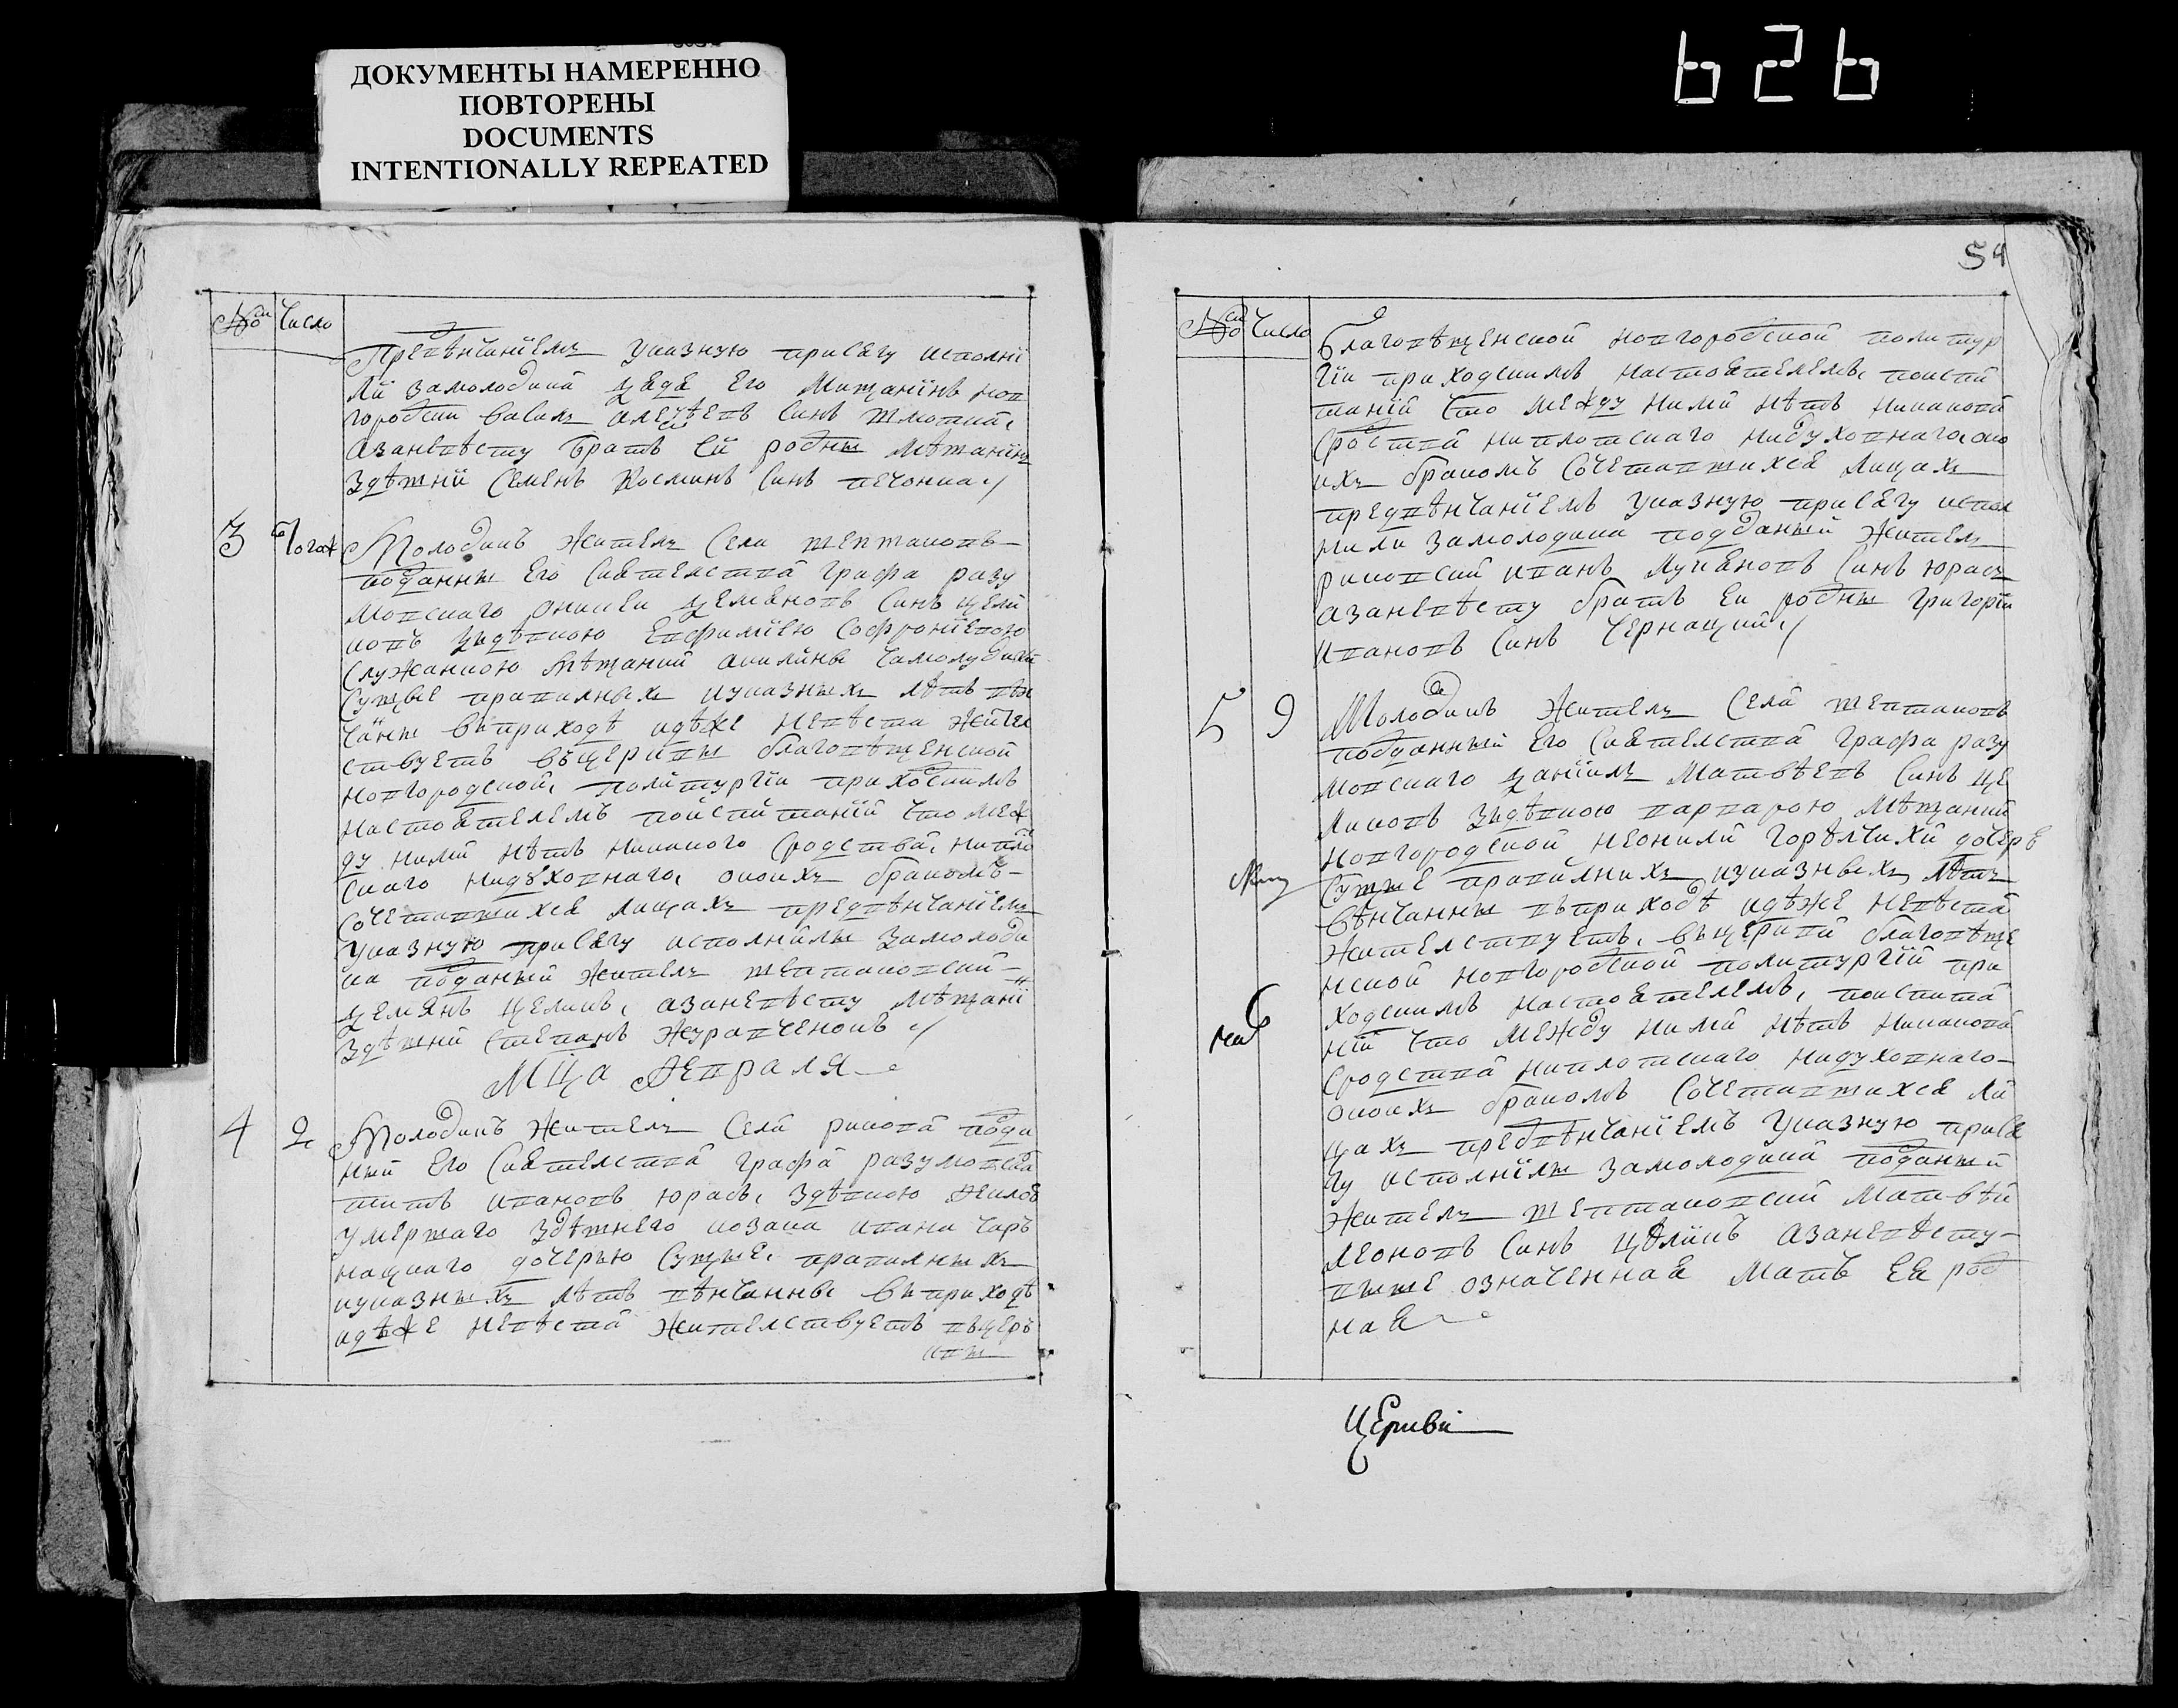 ДОКУМЕНТЫ НАМЕРЕННО
ПОВТОРЕНЫ
DOCUMENTS
INTENTIONALLY REPEATED
626
54
№ Число
Предвѣнчаніемъ указную присягу исполни
ли замолодика дядя Его Мищанинъ нов
городски василь алексѣевъ синъ
азаневѣсту братъ Ей родны мѣщанинъ
здѣшнй Семенъ косминъ синъ печонка
3 Тогож Молодикъ житель села шептаковъ
подданны Его Сиятелства графа разу
мовского онисеи демяновъ синъ цели
ковъ здѣвкою Евфимiею Софронiевою
служанкою мѣщанки акилины
сущые правилныхъ иуказныхъ лѣтъ вѣн
чаны вприходѣ идѣже невѣста жител
ствуетъ въцеркви благовѣщенской
новгородской, политургiи приходскимъ
настоятелемъ поиспитанiи что меж
ду ними нѣтъ никакого сродства, ниплот
скаго нидуховнаго, окоихъ бракомъ
сочетавшихся лицахъ предвѣнчанiемъ
указную присягу исполнилы замолоди
ка поданый житель шептаковский
демянъ целикъ, азаневѣсту мѣщанин
здѣшнй степанъ журавченокъ
Мца февраля
4 2 Молодикъ житель села рикова подда
ный Его Сиятелства графа разумовска
титъ ивановъ юрась, здѣвкою
умершаго здѣшнего козака ивана чар
нацкаго дочерью сущые, правилныхъ
иуказныхъ лѣтъ вѣнчанны вприходѣ
идѣже невѣста жителствуетъ вцер
кви
№ Число
благовѣщенской новгородской политур
гiи приходскимъ настоятелемъ, поиспи
танiи что между ними нѣтъ никакова
сродства ниплотскаго нидуховнаго, око
ихъ бракомъ сочетавшихся лицахъ
предвѣнчанiемъ указную присягу испол
нили замолодика подданый житель
риковский иванъ лукяновъ синъ юрась
азаневѣсту братъ Еи родны григорiи
ивановъ синъ чернацкий
5 9 Молодикъ житель села шептаковъ
подданный Его Сиятелства графа разу
мовского данiилъ матвѣевъ синъ це
ликовъ здѣвкою варварою мѣщанки
новгородской неонили горѣлчихи дочерь
сущые правилнихъ иуказныхъ лѣтъ
вѣнчанны въприходѣ идѣже невѣста
жителствуетъ, въцеркви благовѣще
нской новгородской политургiй при
ходскимъ настоятелемъ, поиспита
нiи что между ними нѣтъ никакова
сродства ниплотского нидуховнаго
окоихъ бракомъ сочетавшихся ли
цахъ предвѣнчанiемъ указную прися
гу исполнилы замолодика поданый
житель шептаковский матвѣй
леоновъ синъ цѣликъ азаневѣсту
выше означенная мать Ея род
ная
церкви